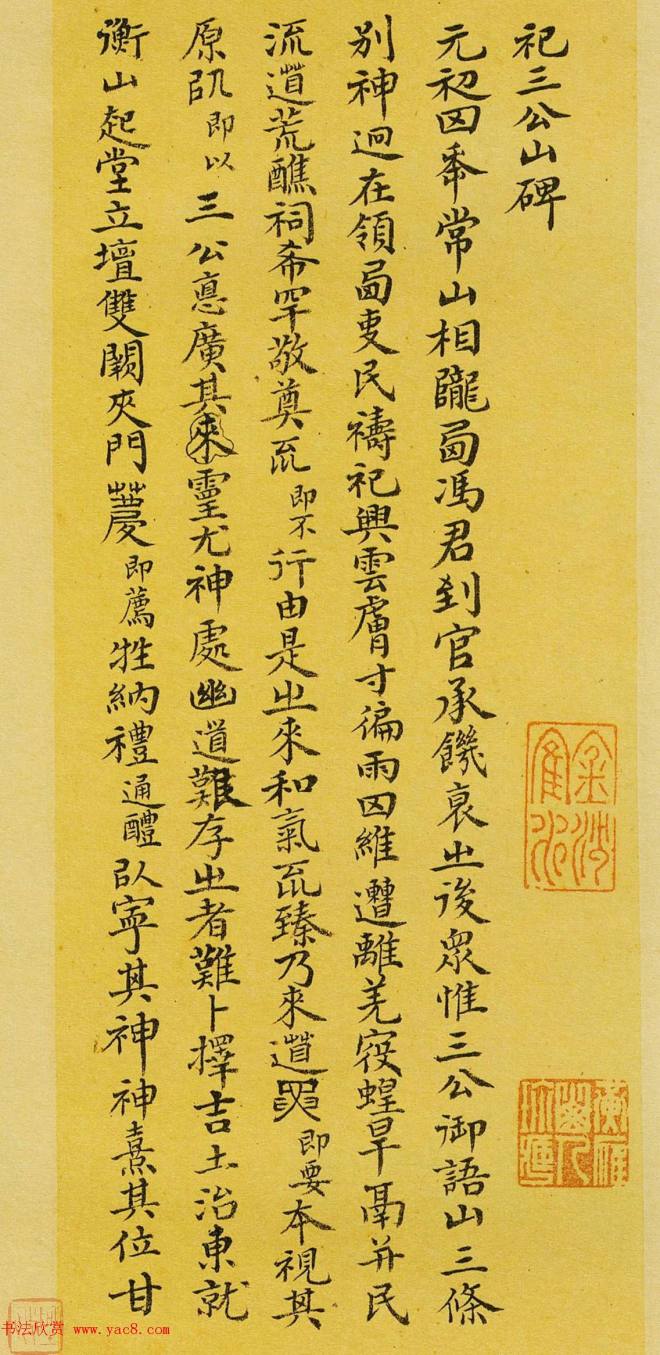 祀三公山碑
元初四年常山相隴西馮君到官承饑衰㞢後衆惟三公御語山三條
别神迥在領西吏民禱祀興雲膚寸徧雨四維遭離羌寇蝗旱鬲并民
流道荒醮祠希罕敬奠不行由是㞢來和氣不臻乃來道要即要本視其
原以即以三公悳廣其靈尤神處幽道難存㞢者難卜擇吉土治東就
衡山起堂立壇雙闕夾門薦即薦牲納禮通醴以寧其神神熹其位甘
书法欣赏 www.yac8.com